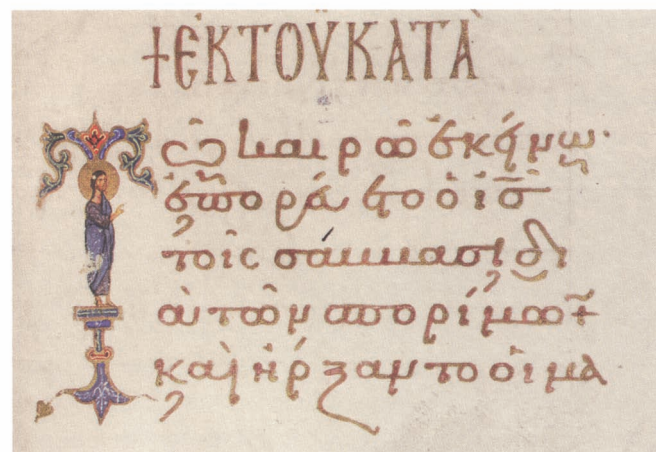 +ἘΚ ΤΟῦ ΚΑΤᾺ
Τῶ καιρῶ ἐκείνω·
ἐπορεύετο ὁ ἰ̅ς̅
τοῖς σάββασι δι
ὰ τῶν σπορίμων
καὶ ἤρξαντο οἱ μα